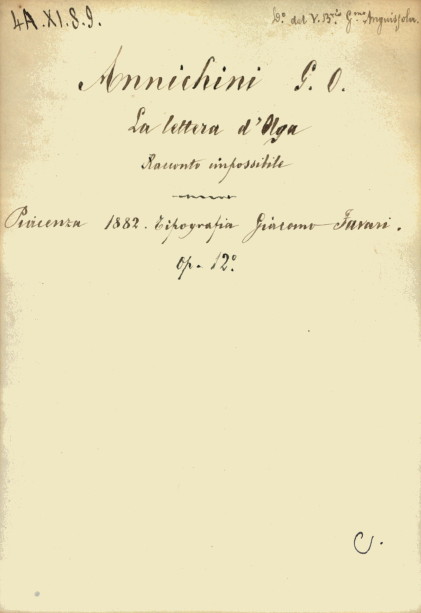 4A.XI.8.9.
D.º del V. B.ne G.mo Anguissola.
Annichini G. O.
La lettera d'Olga
Racconto impossibile
Piacenza 1882. Tipografia Giacomo Favari.
op. 12º.
C.